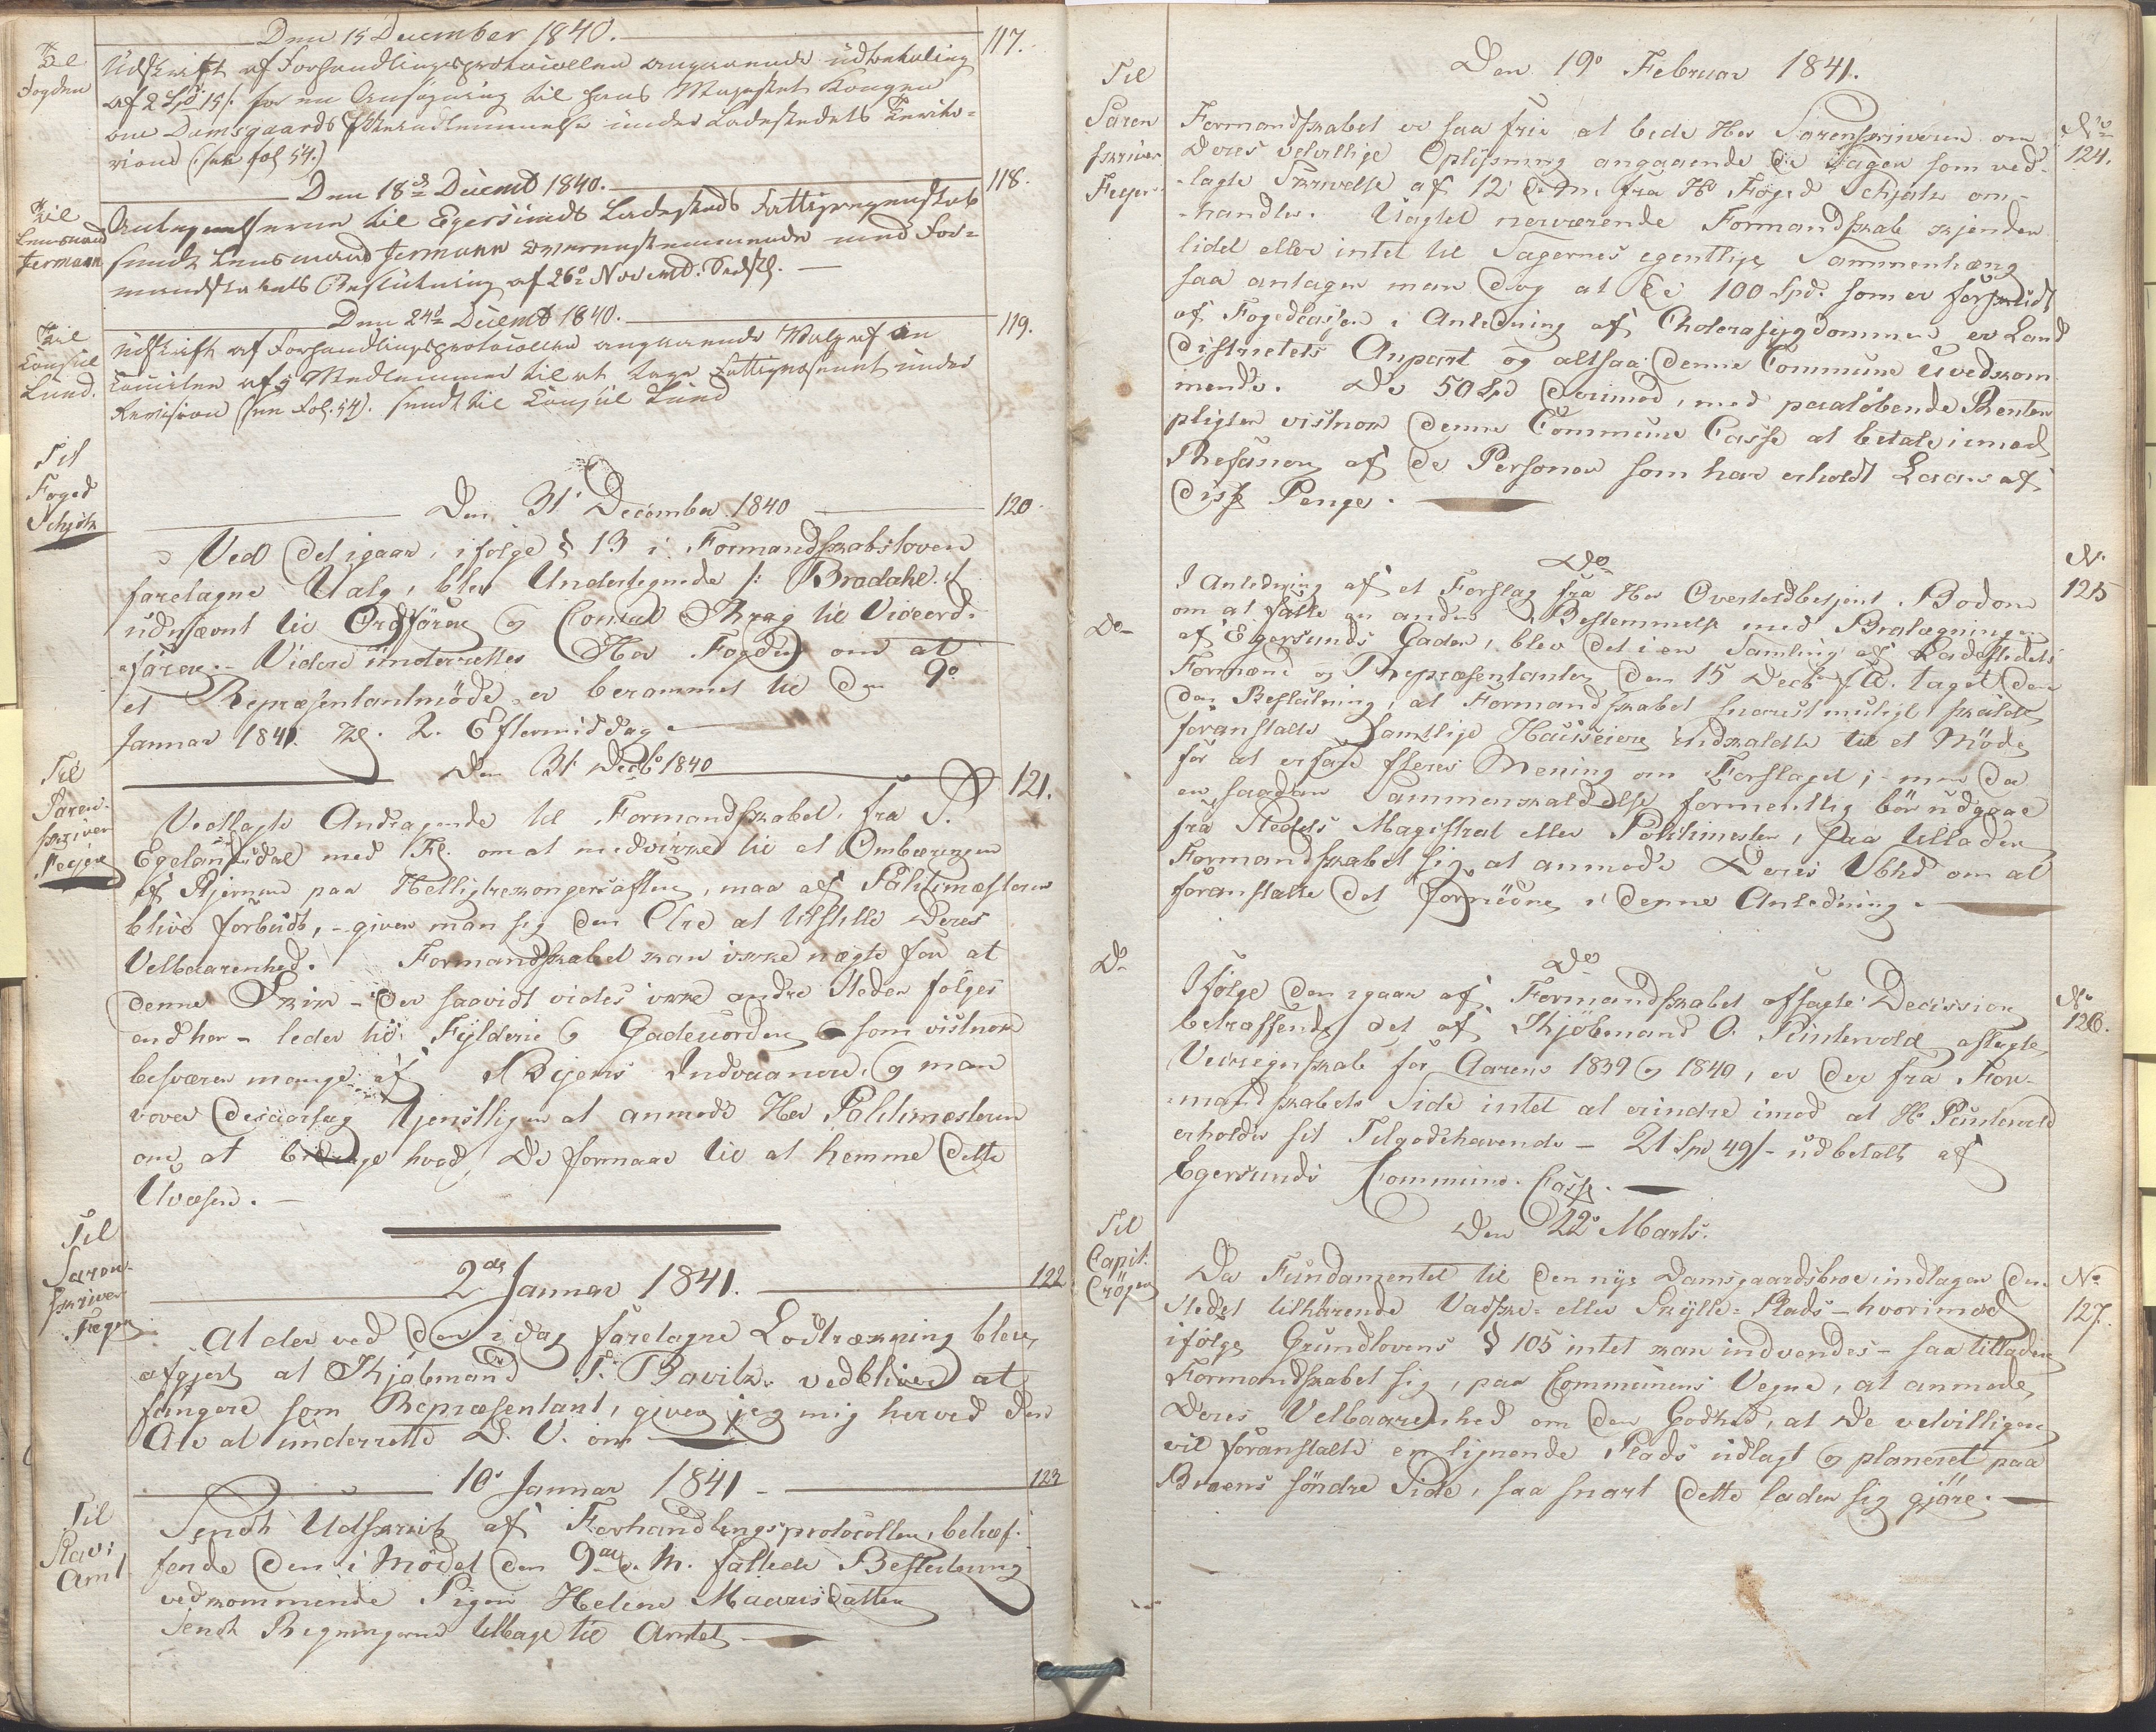 Den 15 December 1840.
117.
Til
Fogden
Udskrift af Forhandlingsprotocollen angaaende udbetaling
af 2 Spd 15 s. for en Ansøgning til Hans Majestæt Kongen
om Damsgaards Indlemmelse under Ladestedets Territo-
rium (see fol 54.)
Den 18de Decembr 1840.
118.
Til
Lensmand
Jermann
Antegnelserne til Egersunds Ladesteds Fattigregnskab
sendt Lensmand Jermann overensstemmende med For-
mandskabets Beslutning af 26de Novembr.
Den 24de Decembr 1840.
119.
Til
Consul
Lund.
Udskrift af Forhandlingsprotocollen angaaende Valg af en
Comitee af 5 Medlemmer til at tage Fattigvæsenet under
Revision (see Fol. 54). sendt til Consul Lund
Til
Foged
Schjøtz
Den 31' December 1840
120.
Ved det igaar, ifølge § 13 i Formandskabsloven
foretagne Valg, blev Undertegnede /: Bradahl :/
udnævnt til Ordfører og Consul Krag til Viceord-
fører. Videre underrettes Her Fogden om at
et Repræsentantmøde er berammet til den 9de
Januar 1841. Kl. 2. Eftermiddag.
Den 31 Decbr 1840
121.
Til
Soren-
skriver
Feyer
Vedlagte Andragende til Formandskabet fra S.
Egelandsdal med Fl. om at medvirke til at Ombæringen
af Stjernen paa Helligtrekongersaften, maa af Politimesteren
blive forbudt, - giver man sig den Ære at tilstille Deres
Velbaarenhed. Formandskabet kan ikke nægte for at
denne Skik - der saavidt vides ikke andre Steder følges
end her - leder til Fylderie og Gadeuorden som vistnok
besværer mange af Byens Indvaanere, og man
vover desaarsag tjenstligen at anmode Her Politimesteren
om at bidrage hvad De formaaer til at hemme dette
Uvæsen. -
Til
Soren-
skriver
Feyer
2de Januar 1841.
122
At der ved den idag foretagne Lodtrækning blev
afgjort at Kjøbmand T. Bavitz. vedbliver at
fungere som Repræsentant, giver jeg mig herved den
Ære at underrette D. V. om
10' Januar 1841 -
123
Til
Stav:
Amt
Sendt Udskrift af Forhandlingsprotocollen, betræf-
fende den i Mødet den 9de d. M. fattede Beslutning
vedkommende Pigen Helene Mauritsdatter
Sendt Regningerne tilbage til Amtet
Den 19' Februar 1841.
Til
Soren
skriver
Feyer
No
124.
Formandskabet er saa frie at bede Her Sorenskriveren om
Deres velvillige Oplysning angaaende de Sager som ved-
lagte Skrivelse af 12 d. M. fra Hr Foged Schjøtz om-
handler. Uagtet nærværende Formandskab kjender
lidet eller intet til Sagernes egentlige Sammenhæng
saa antager man dog at de 100 Spd. som er forskudt
af Fogedcassen i Anledning af Cholerasygdommen er Land
districtets Anpart og altsaa denne Commune uvedkom-
mende. De 50 Spd derimod, med paaløbende Renter
pligter vistnok denne Commune Casse at betale imod
Refusion af de Personer som har erholdt Laan af
disse Penge.
Do
Do
No
125
I Anledning af et Forslag fra Her Overtoldbetjent Bodom
om at fatte en anden Bestemmelse med Brolægningen
af Egersunds Gader, blev det i en Samling af Ladestedets
Formænd og Repræsentanter den 15 Decbr f. A. taget den
Beslutning, at Formandskabet snarest muligt skulde
foranstalte samtlige Huuseiere indkaldte til et Møde
for at erfare deres Mening om Forslaget; - men da
en saadan Sammenkaldelse formentlig bør udgaae
fra Stedets Magistrat eller Politimester, saa tillader
Formandskabet sig at anmode Deres Vbhd om at
foranstalte det fornødne i denne Anledning.
Do
Do
No
126.
Ifølge den igaar af Formandskabet afsagte Decision
betræffende det af Kjøbmand O. Puntervold aflagte
Veiregnskab for Aarene 1839 og 1840, er der fra For-
mandskabets Side intet at erindre imod at Hr Puntervold
erholder sit Tilgodehavende - 21 Spd 49 s - udbetalt af
Egersunds Commune Casse.
Den 22' Marts.
Til
Capit:
Crøger
No
127.
Da Fundamentet til den nye Damsgaardsbroe indtager den
Stedet tilhørende Vadske- eller Skylle-Plads - hvorimod
ifølge Grundlovens § 105 intet kan indvendes - saa tillader
Formandskabet sig, paa Communens Vegne, at anmode
Deres Velbaarenhed om den Godhed, at De velvilligen
vil foranstalte en lignende Plads udlagt og planeret paa
Broens søndre Side, saa snart dette lader sig gjøre.